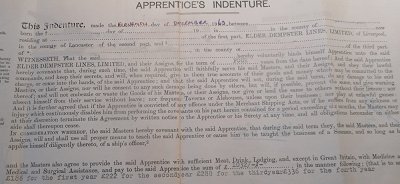 APPRENTICE'S INDENTURE.
This Indenture, made the ELEVENTH day of DECEMBER 1962, between
born the day of in the county of now
residing at of the first part, ELDER DEMPSTER LINES, LIMITED, of Liverpool,
in the county of Lancaster of the second part, and
of in the county of of the third part.
WITNESSETH, That the said hereby voluntarily binds himself Apprentice unto the said
ELDER DEMPSTER LINES, LIMITED, and their Assigns, for the term of FOUR years from the date hereof, and the said Apprentice
hereby covenants that, during such time, the said Apprentice will faithfully serve his said Masters, and their Assigns, and obey their lawful
commands, and keep their secrets, and will, when required, give to them true accounts of their goods and money which may be committed to the
charge, or come into the hands, of the said Apprentice; and that the said Apprentice will not, during the said term, do any damage to his said
Masters, or their Assigns, nor will he consent to any such damage being done by others, but will, if possible, prevent the same, and give warning
thereof; and will not embezzle or waste the Goods of his Masters, or their Assigns, nor give or lend the same to others without their licence; nor
absent himself from their service without leave; nor frequent Taverns or Alehouses, unless upon their business; nor play at unlawful games:
And it is further agreed that if the Apprentice is convicted of any offence under the Merchant Shipping Acts, or if he suffer from any sickness or
injury which continuously disables him from performing his part herein contained for a period exceeding six months, the Masters may
at their discretion terminate this Agreement by written notice to the Apprentice or his Surety at any time, and all obligations hereunder on either
side shall thereupon cease.
IN CONSIDERATION WHEREOF, the said Masters hereby covenant with the said Apprentice, that during the said term they, the said Masters, and their
Assigns, will and shall use all proper means to teach the Apprentice or cause him to be taught the business of a Seaman, and so long as he
applies himself diligently thereto, of a ship's officer,
and the Masters also agree to provide the said Apprentice with sufficient Meat, Drink, Lodging, and, except in Great Britain, with Medicine and
Medical and Surgical Assistance, and pay to the said Apprentice the sum of in the manner following; (that is to say)
£186 for the first year £222 for the second year £282 for the third year £336 for the fourth year